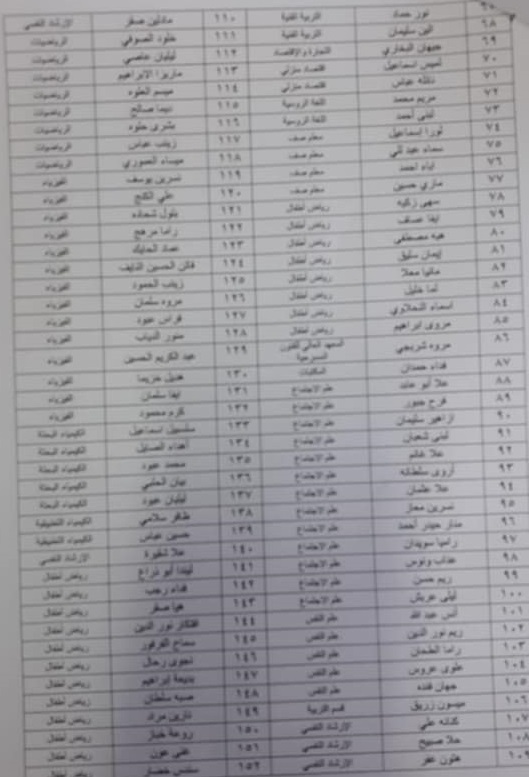 ٦٨ نور حماد التربية الفنية
٦٩ الين سليمان التربية الفنية
٧٠ جيهان البخاري التجارة والاقتصاد
٧١ لميس اسماعيل اقتصاد منزلي
٧٢ عباس اقتصاد منزلي
٧٣ مريم محمد اللغة الروسية
٧٤ لبنى أحمد اللغة الروسية
٧٥ لورا إسماعيل معلم صف
٧٦ سماء عبد معلم صف
٧٧ اباء احمد معلم صف
٧٨ ماري حسين معلم صف
٧٩ سهى زكيه رياض أطفال
٨٠ ايفا عساف رياض أطفال
٨١ هبه مصطفى رياض أطفال
٨٢ إيمان سليق رياض أطفال
٨٣ مانيا محلا رياض أطفال
٨٤ لما خليل رياض أطفال
٨٥ اسماء النحلاوي رياض أطفال
٨٦ مروى ابراهيم رياض أطفال
مروه شريجي المعهد العالي للفنون المسرحية
٨٧ فداء حمدان المكتبات
٨٨ علا أبو عابد علم الاجتماع
٨٩ فرح جبور علم الاجتماع
٩٠ ازاهير سليمان علم الاجتماع
٩١ لبنى شعبان علم الاجتماع
٩٢ علا غانم علم الاجتماع
٩٣ أروى سلطانه علم الاجتماع
٩٤ علا عثمان علم الاجتماع
٩٥ نسرين معمار علم الاجتماع
٩٦ منار حيدر أحمد علم الاجتماع
٩٧ راميا سويدان علم الاجتماع
٩٨ عذاب ونوس علم الاجتماع
٩٩ ريم حسن علم الاجتماع
١٠٠ ليلى عريش علم الاجتماع
١٠١ أنس عبد الله علم النفس
١٠٢ ريم نور الدين علم النفس
١٠٣ راما الطحان علم النفس
١٠٤ علوى عروس علم النفس
١٠٥ جهان علم النفس
١٠٦ ميسون زريق قسم التربية
١٠٧ كنانه علي الإرشاد النفسي
١٠٨ حلا صبيح الإرشاد النفسي
هتون الإرشاد النفسي
١١٠ مادلين صقر الإرشاد النفسي
١١١ خلود الصوفي الرياضيات
١١٢ ليليان عاصي الرياضيات
١١٣ ماريزا الابراهيم الرياضيات
١١٤ ميسم العلوه الرياضيات
١١٥ ديما صالح الرياضيات
١١٦ بشرى حلوه الرياضيات
١١٧ زينب عباس الرياضيات
١١٨ ميساء العموري الرياضيات
١١٩ نسرين يوسف الفيزياء
١٢٠ علي الكنج الفيزياء
١٢١ بتول شحاده الفيزياء
١٢٢ راما مرهج الفيزياء
١٢٣ عماد الحايك الفيزياء
١٢٤ فاتن الحسين النايف الفيزياء
١٢٥ زينب الحمود الفيزياء
١٢٦ مروه سلمان الفيزياء
١٢٧ فراس عبود الفيزياء
١٢٨ منور الدياب الفيزياء
١٢٩ عبد الكريم الحسين الفيزياء
٢٣٠ هديل خزيما الفيزياء
١٣١ ايفا سلمان الفيزياء
١٣٢ كرم محمود الفيزياء
١٣٣ سلسبيل اسماعيل الكيمياء البحتة
١٣٤ أهداء الصايل الكيمياء البحتة
١٣٥ محمد عبود الكيمياء البحتة
١٣٦ بيان الحلبي الكيمياء البحتة
١٣٧ ليليان عبود الكيمياء البحتة
١٣٨ ظافر سلامي الكيمياء التطبيقية
١٣٩ حسين عباس الكيمياء التطبيقية
١٤٠ علا الإرشاد النفسي
١٤١ ليندا أبو ذراع رياض أطفال
١٤٢ فداء رجب رياض أطفال
١٤٣ هيا صقر رياض أطفال
١٤٤ افتكار نور الدين رياض أطفال
١٤٥ سماح القرقور رياض أطفال
١٤٦ نجوى رحال رياض أطفال
١٤٧ بديعة إبراهيم رياض أطفال
١٤٨ سلطان رياض أطفال
١٤٩ نارين مراد رياض أطفال
١٥٠ روعة خباز رياض أطفال
١٥١ عون رياض أطفال
١٥٢ سندس خضار رياض أطفال